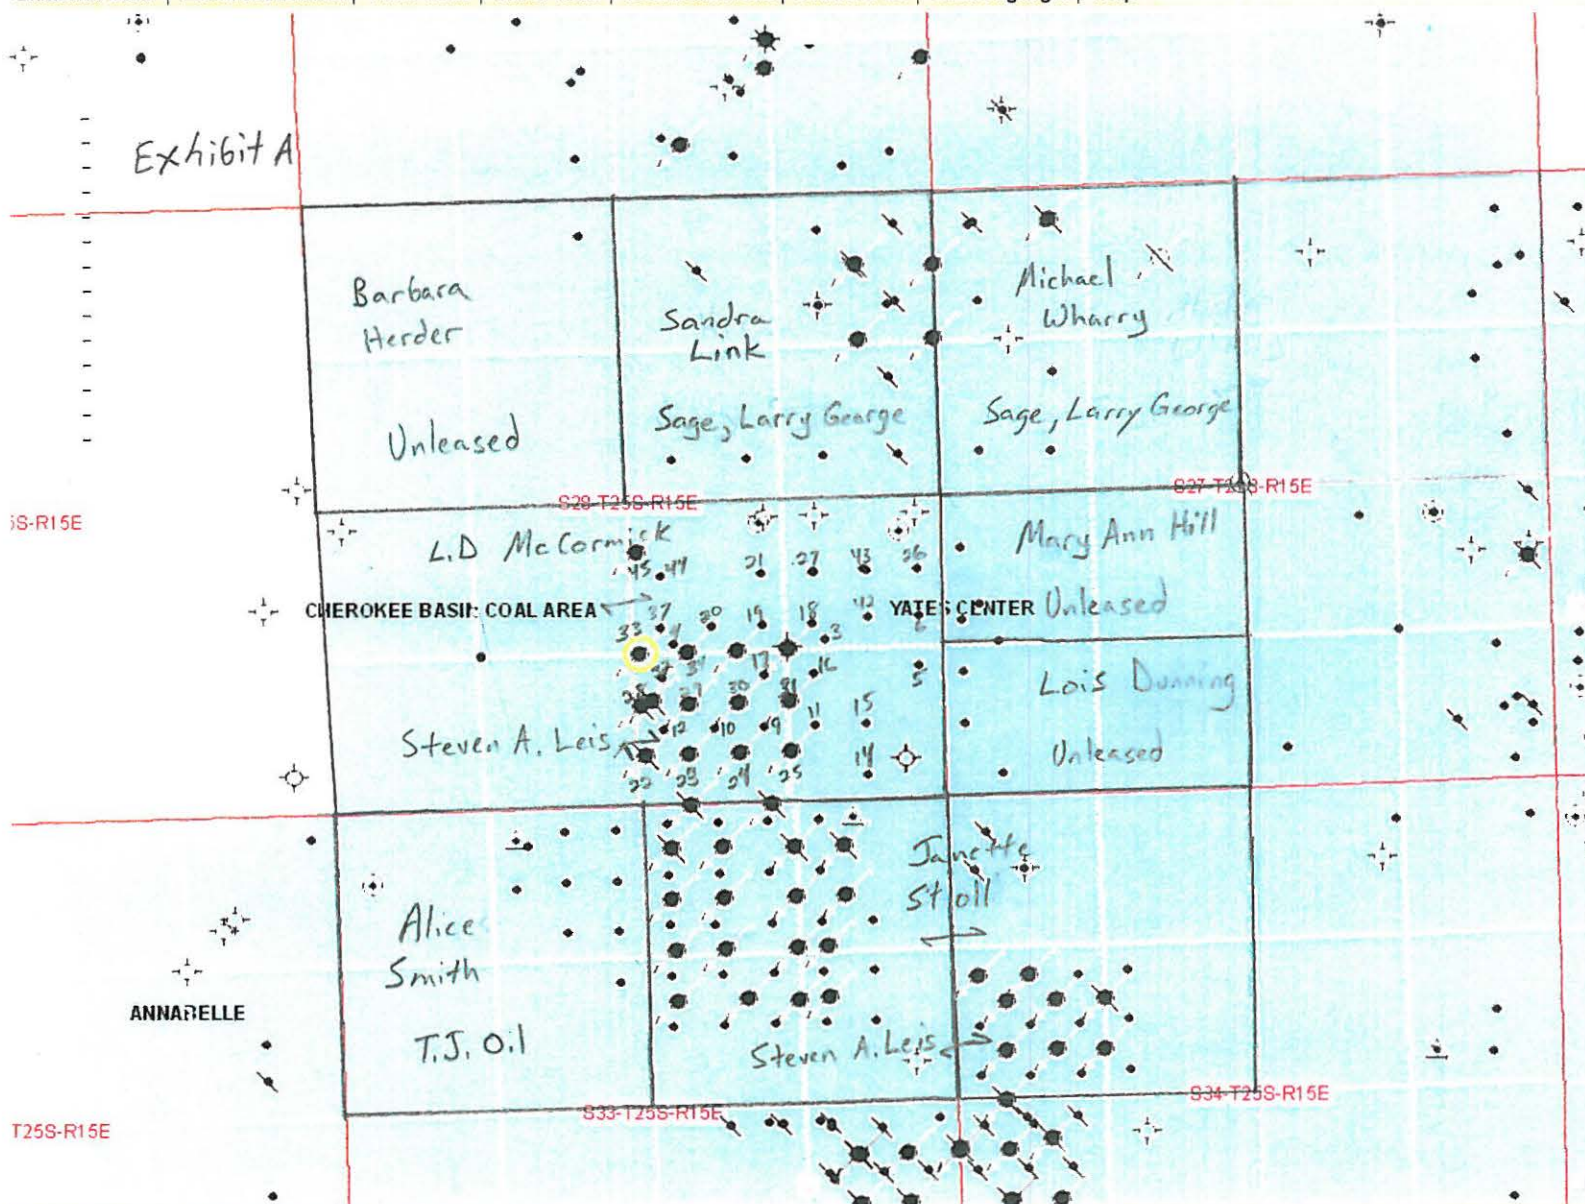 Exhibit A
Barbara
Herder
Unleased
Sandra
Link
Sage, Larry George
Michael
Wharry
Sage, Larry George
S28-T25S-R15E
S27-T25S-R15E
5S-R15E
L.D McCormick
Mary Ann Hill
Unleased
45 44 21 27 43 26
CHEROKEE BASIN COAL AREA
YATES CENTER
37 20 19 18 42
33 4 3 6
34 17 16 5
28 29 30 31
Steven A. Leis
12 10 9 11 15
14
22 23 24 25
Lois Dunning
Unleased
Janette
Stoll
Alice
Smith
T.J. Oil
Steven A. Leis
ANNABELLE
S33-T25S-R15E
S34-T25S-R15E
T25S-R15E